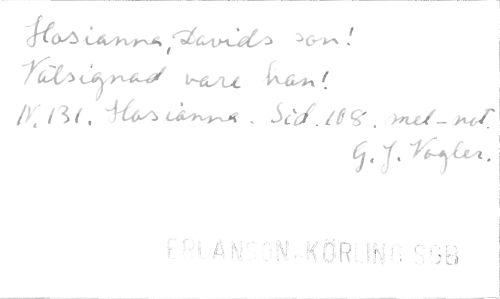 Hosianna, Davids son!
Välsignad vare han!
N. 131. Hosianna. Sid. 108. mel-not.
G. J. Vogler.
ERLANSON-KÖRLING SGB